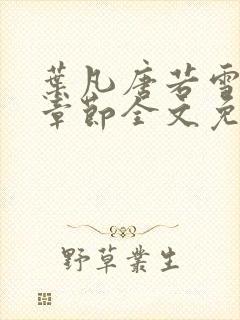 葉凡唐若雪
章節全文免
野草叢生